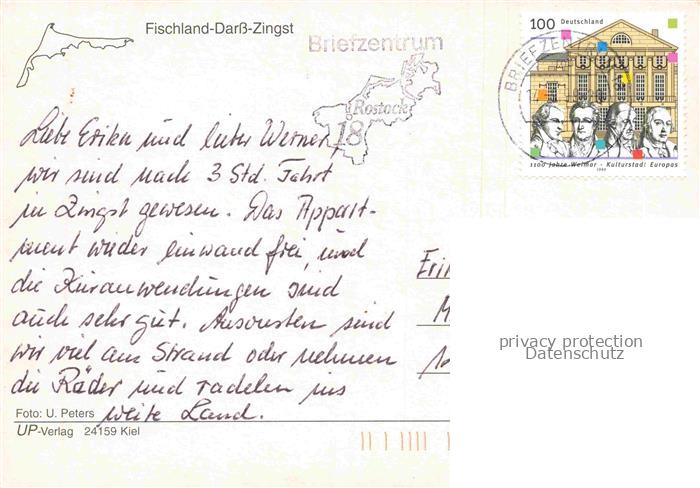 Fischland-Darß-Zingst
Briefzentrum
Rostock
18
BRIEFZEN
100 Deutschland
1100 Jahre Weimar - Kulturstadt Europas
1999
Liebe Erika und lieber Werner,
wir sind nach 3 Std. Fahrt
in Zingst gewesen. Das Appart-
ment wieder einwandfrei, und
die Kuranwendungen sind
auch sehr gut. Ansonsten sind
wir viel am Strand oder nehmen
die Räder und radeln ins
weite Land.
Foto: U. Peters
UP-Verlag 24159 Kiel
privacy protection
Datenschutz